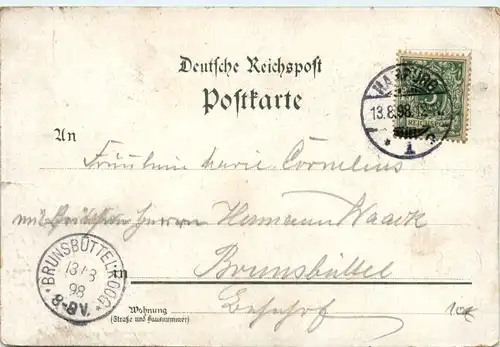 Deutsche Reichspost
Postkarte
HAMBURG
13.8.98.
1
REICHSPOST
An
Fräulein Marie Cornelius
Herrn Hermann Waack
in
Brunsbüttel
BRUNSBÜTTELKOOG
13/8
98
8-9V.
Wohnung
(Straße und Hausnummer)
Bahnhof